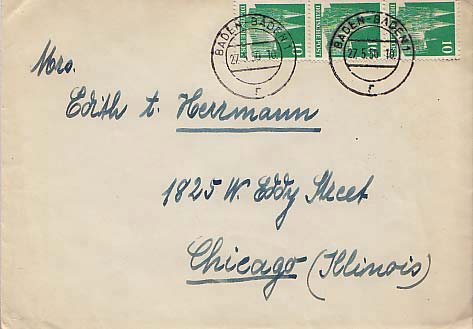 BADEN-BADEN 1
27.5.50.-18
r
BADEN-BADEN 1
27.5.50.-18
r
10
10
10
Mrs.
Edith t. Herrmann
1825 W. Eddy Street
Chicago (Illinois)